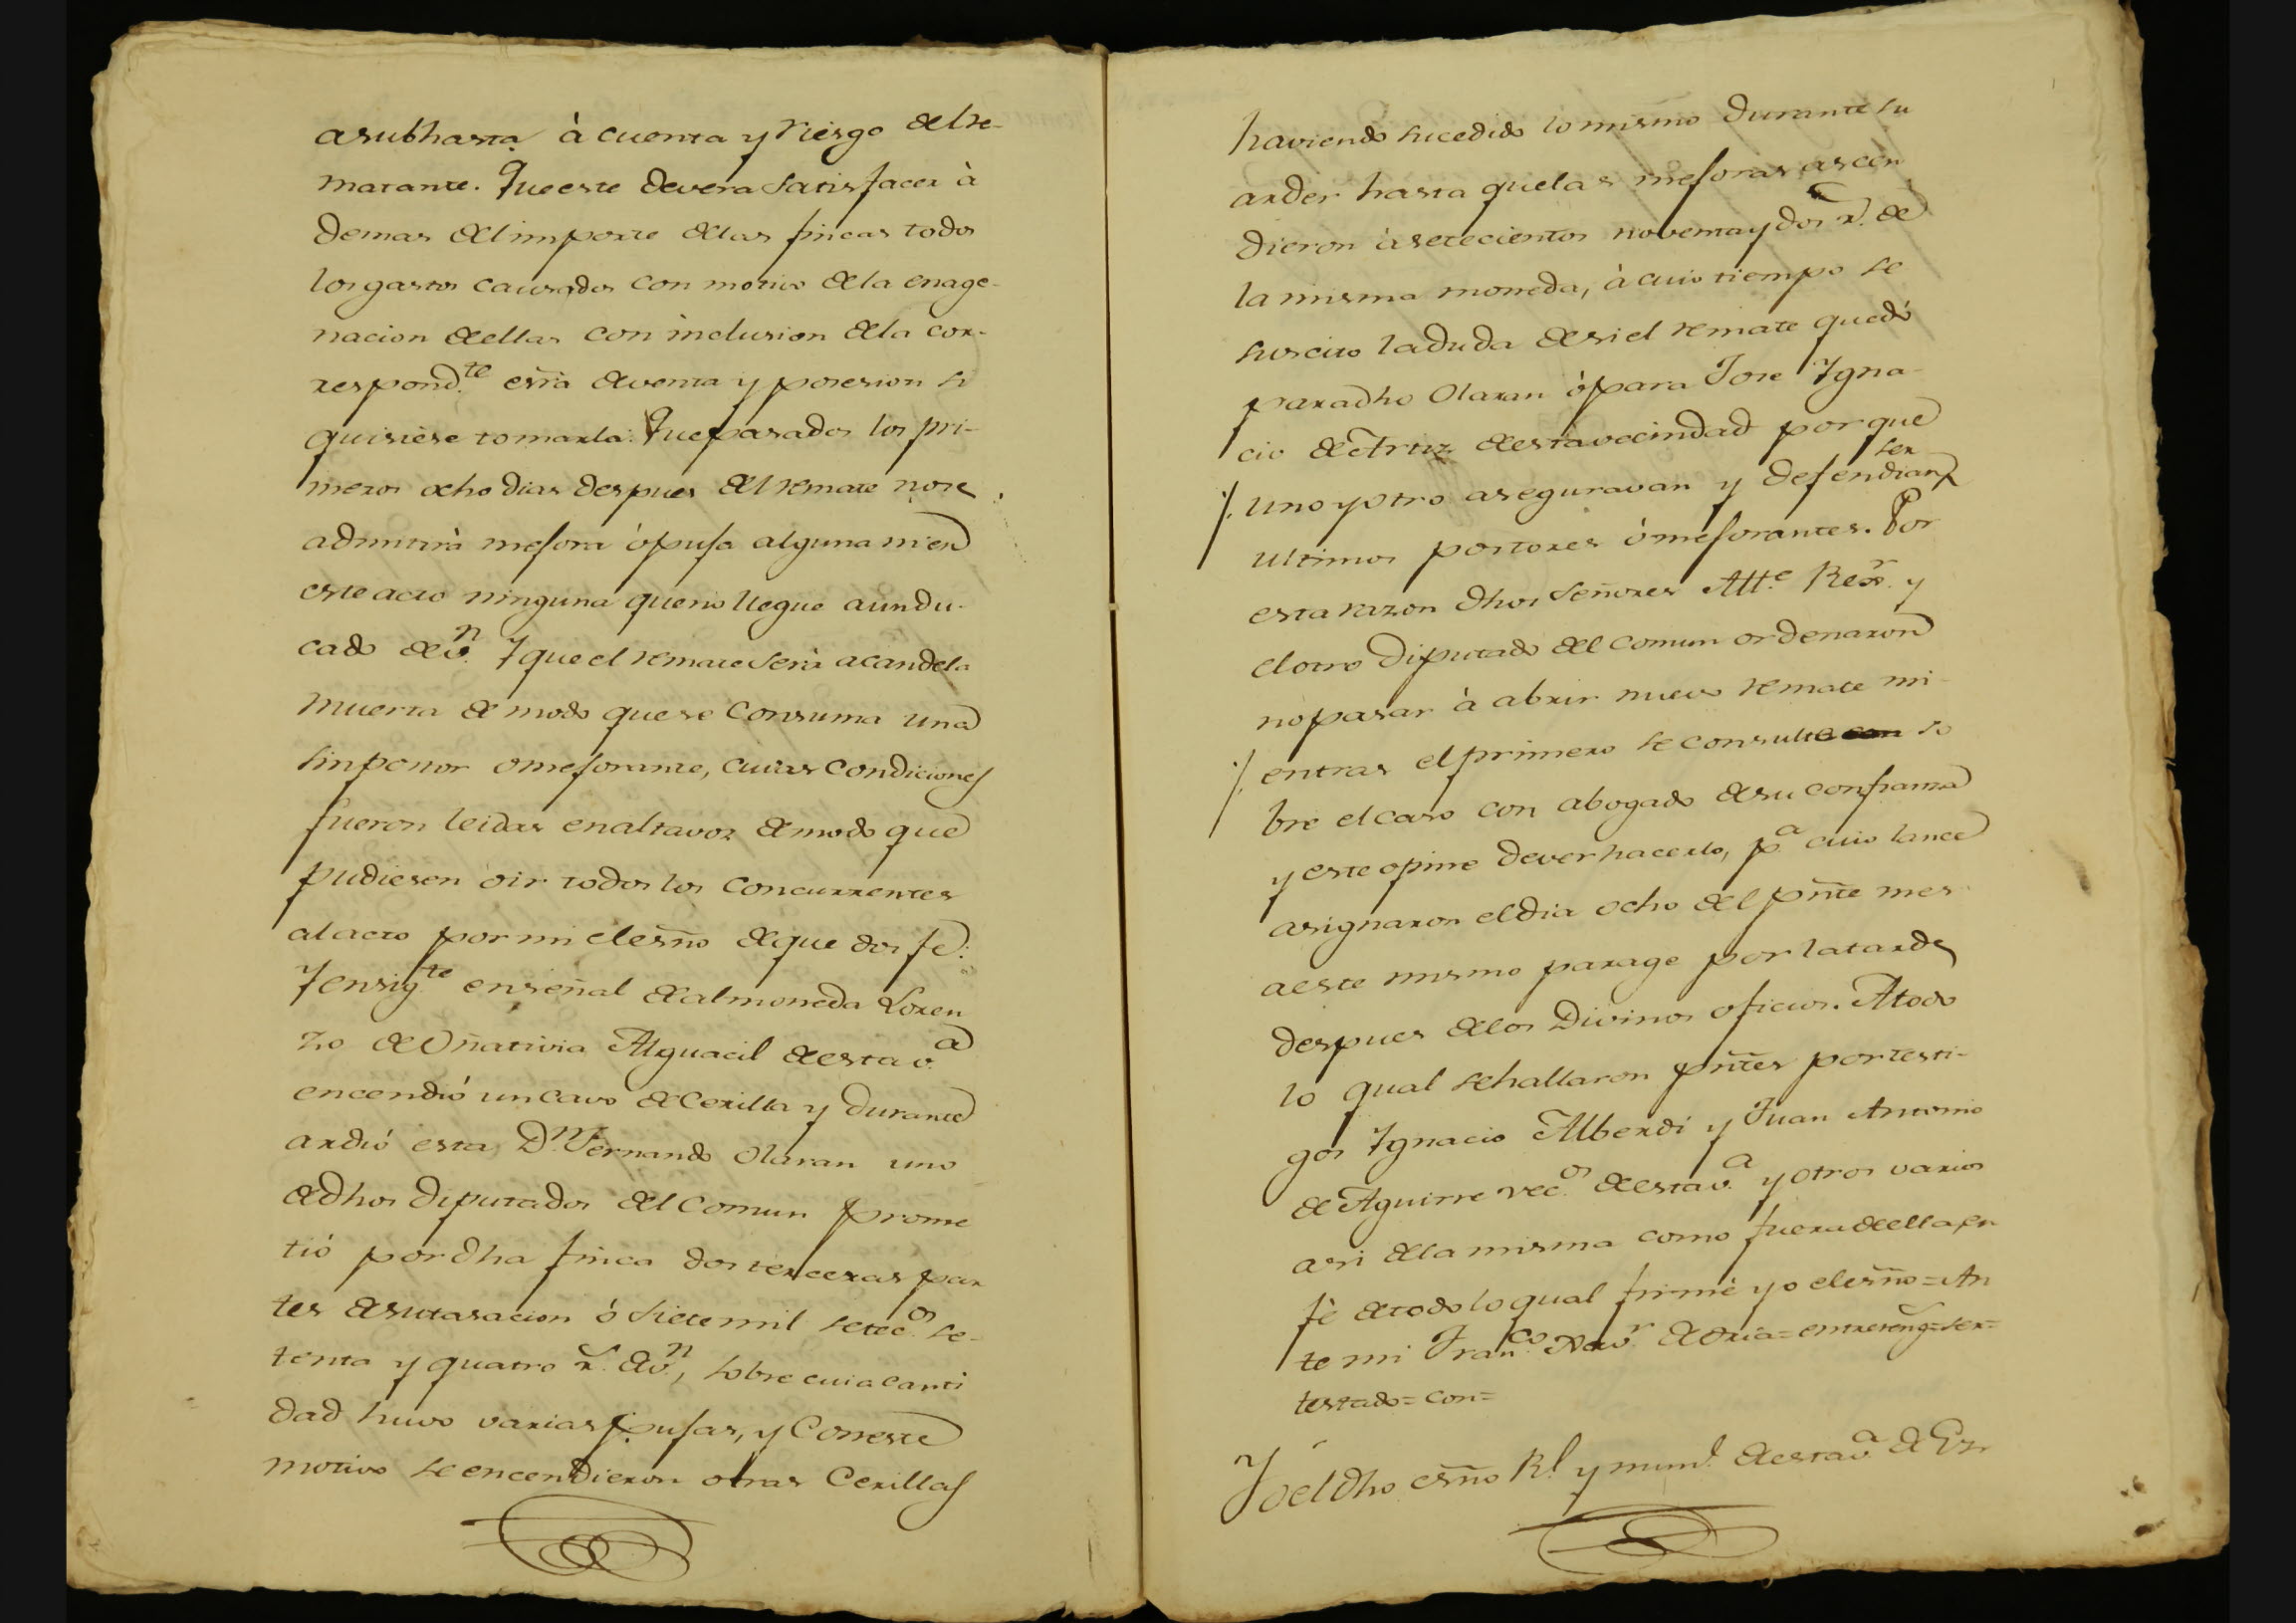 asubhasta à cuenta y riesgo del re-
matante. Que este devera satisfacer à
demas del importe de las fincas todos
los gastos causados con motivo de la enage-
nacion de ellas con inclusion de la cor-
respond.te esrra de venta y posesion si
quisiese tomarla. Que pasados los pri-
meros ocho dias despues del remate no se
admitirà mejora ó puja alguna ni en
este acto ninguna que no llegue a un du-
cado de v.n Y que el remate serà a candela
muerta de modo que se consuma una
sin postor o mejorante, cuias condiciones
fueron leidas en alta voz de modo que
pudiesen oir todos los concurrentes
al acto por mi el esño de que doi fe:
Y en sig.te en señal de almoneda Loren
zo de Oñativia Alguacil de esta v.a
encendió un cavo de cerilla y durante
ardió esta D.n Fernando Olaran uno
de dhos Diputados del Comun prome
tió por dha finca dos terceras par
tes de su tasacion ó siete mil setec.os se-
tenta y quatro r.s de v.n, sobre cuia canti
dad huvo varias pujas, y con este
motivo se encendieron otras cerillas
haviendo sucedido lo mismo durante su
arder hasta que las mejoras ascen
dieron à setecientos noventa y dos r.s de
la misma moneda, à cuio tiempo se
suscito la duda de si el remate quedó
para dho Olaran ó para Jose Igna-
cio de Aruz de esta vecindad porque
uno y otro aseguravan y defendian ser
ultimos postores ó mejorantes. Por
esta razon dhos Señores Att.e Rex.r y
el otro Diputado del comun ordenaron
no pasar à abrir nuevo remate mi-
entras el primero se consulte con so
bre el caso con abogado de su confianza
y este opine dever hacerlo, p.a cuio lance
asignaron el dia ocho del pñte mes
a este mismo parage por la tarde
despues de los Divinos oficios. A todo
lo qual se hallaron pñtes por testi-
gos Ignacio Alberdi y Juan Antonio
de Aguirre vec.os de esta v.a y otros varios
asi de la misma como fuera de ella, en
fè de todo lo qual firmé yo el esño = An
te mi Fran.co Xav.r de Oria = entrereng.s = ser =
testado = con =
Yo el dho esño R.l y num.l de esta v.a de